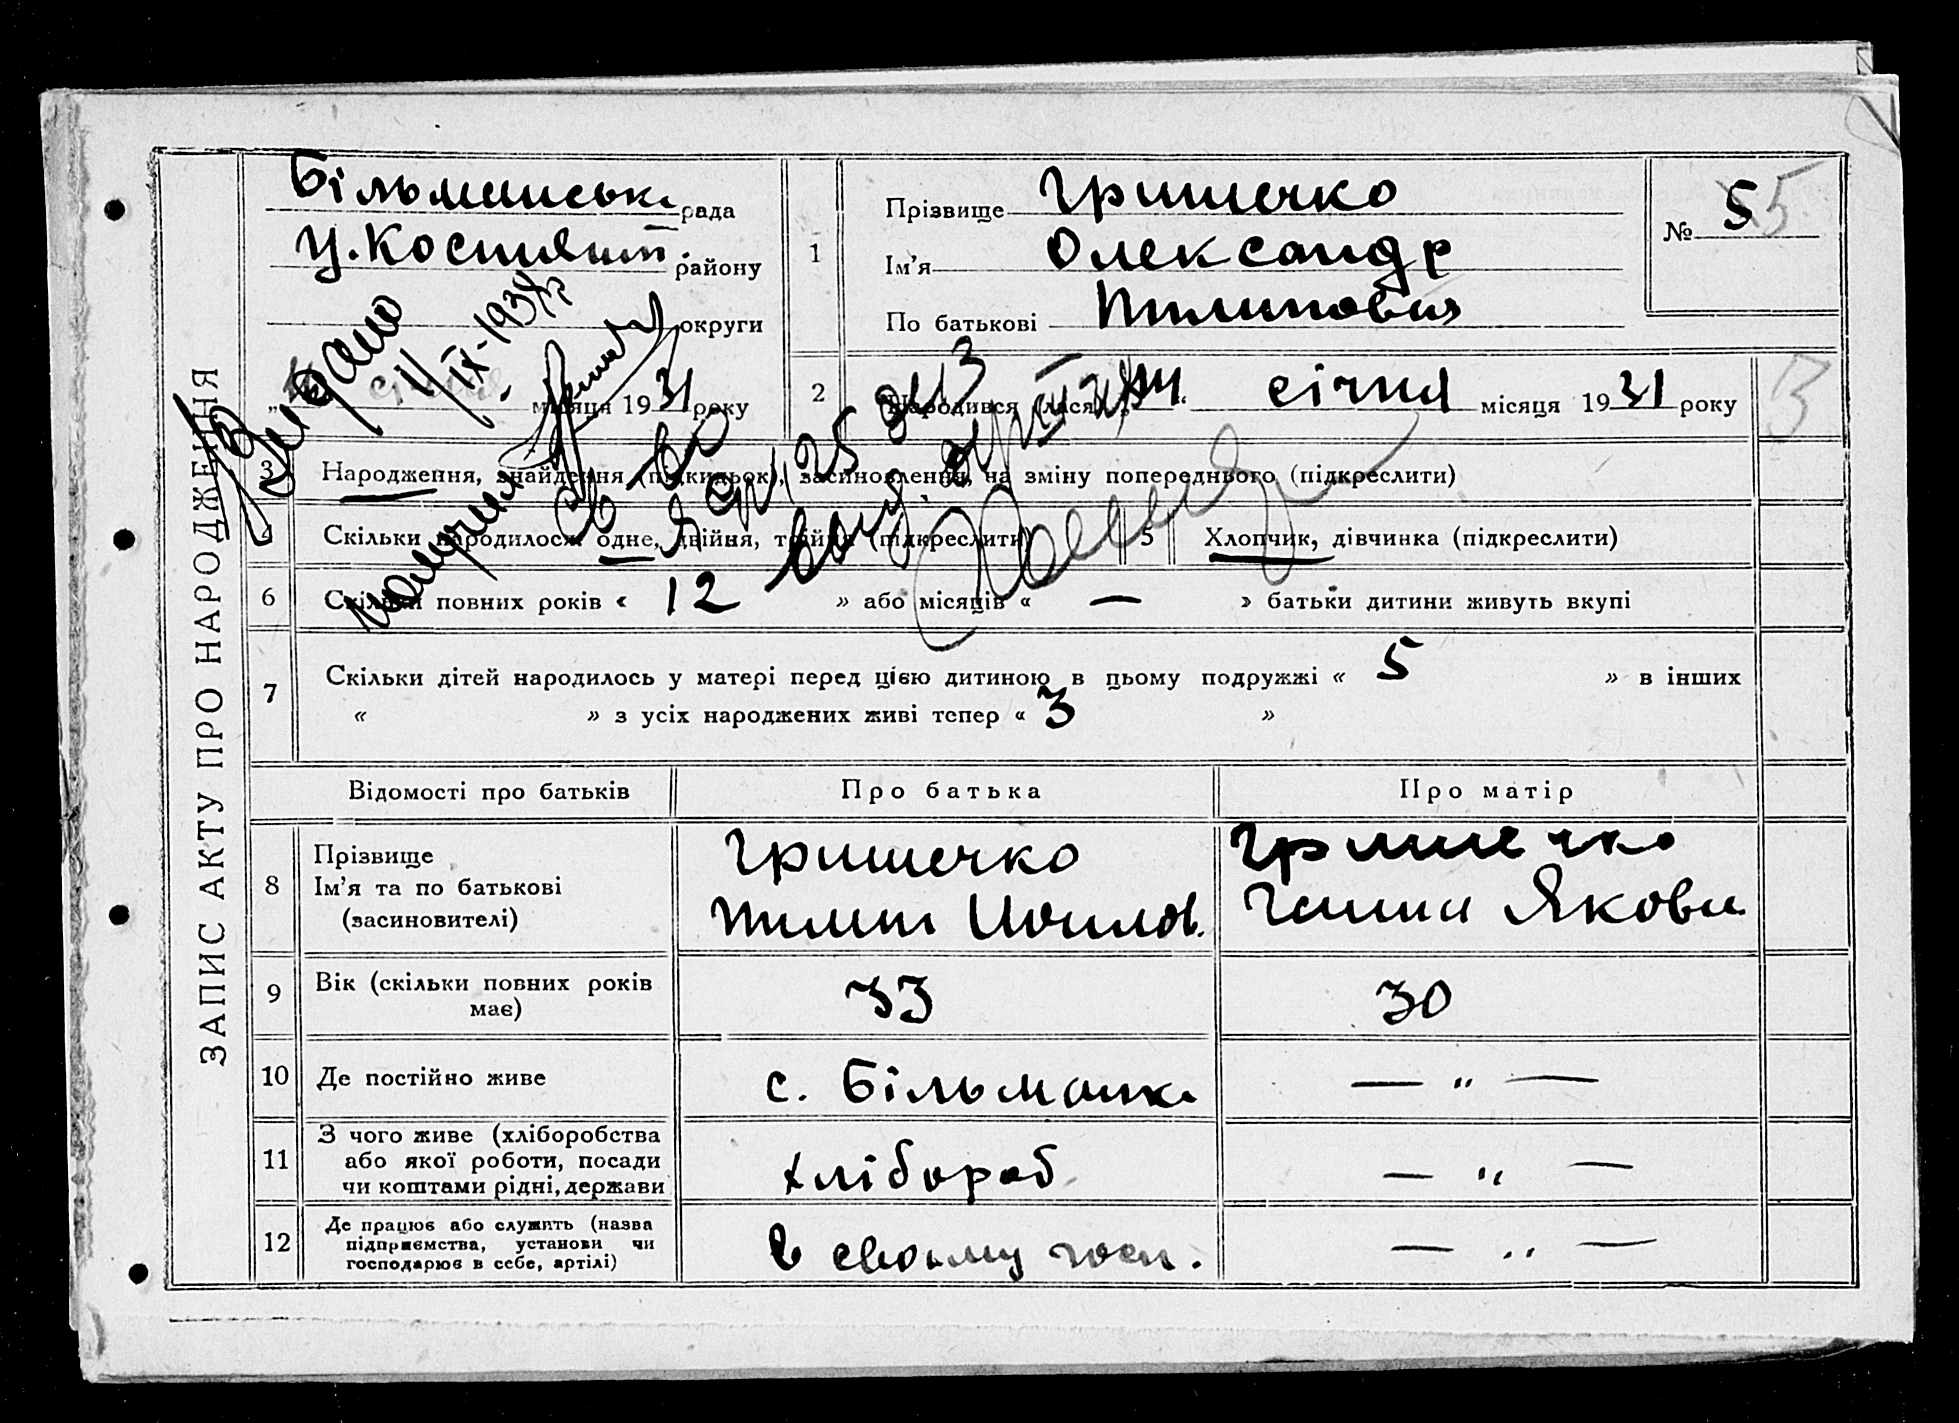 ЗАПИС АКТУ ПРО НАРОДЖЕННЯ
Більманськ. рада
Ц. Костянт. району
округи
місяця 1931 року
1
Прізвище Гришечко
Ім'я Олександр
По батькові Пилипович
№ 5
5
2 Народився (лася) „ “ січня місяця 1931 року
3
3 Народження, знайдення (підкидьок), засиновлення, на зміну попереднього (підкреслити)
4 Скільки народилося: одне, двійня, трійня (підкреслити) 5 Хлопчик, дівчинка (підкреслити)
6 Скільки повних років « 12 » або місяців « — » батьки дитини живуть вкупі
7 Скільки дітей народилось у матері перед цією дитиною в цьому подружжі « 5 » в інших
« » з усіх народжених живі тепер « 3 »
Відомості про батьків Про батька Про матір
8 Прізвище
Ім'я та по батькові
(засиновителі)
Гришечко
Пилип
Гришечко
Ганна Якови
9 Вік (скільки повних років
має)
33
30
10 Де постійно живе с. Більманка — „ —
11 З чого живе (хліборобства
або якої роботи, посади
чи коштами рідні, держави
хлібороб
— „ —
12 Де працює або служить (назва
підприємства, установи чи
господарює в себе, артілі)
в своьму госп.
— „ —
Видано
11/IX-193